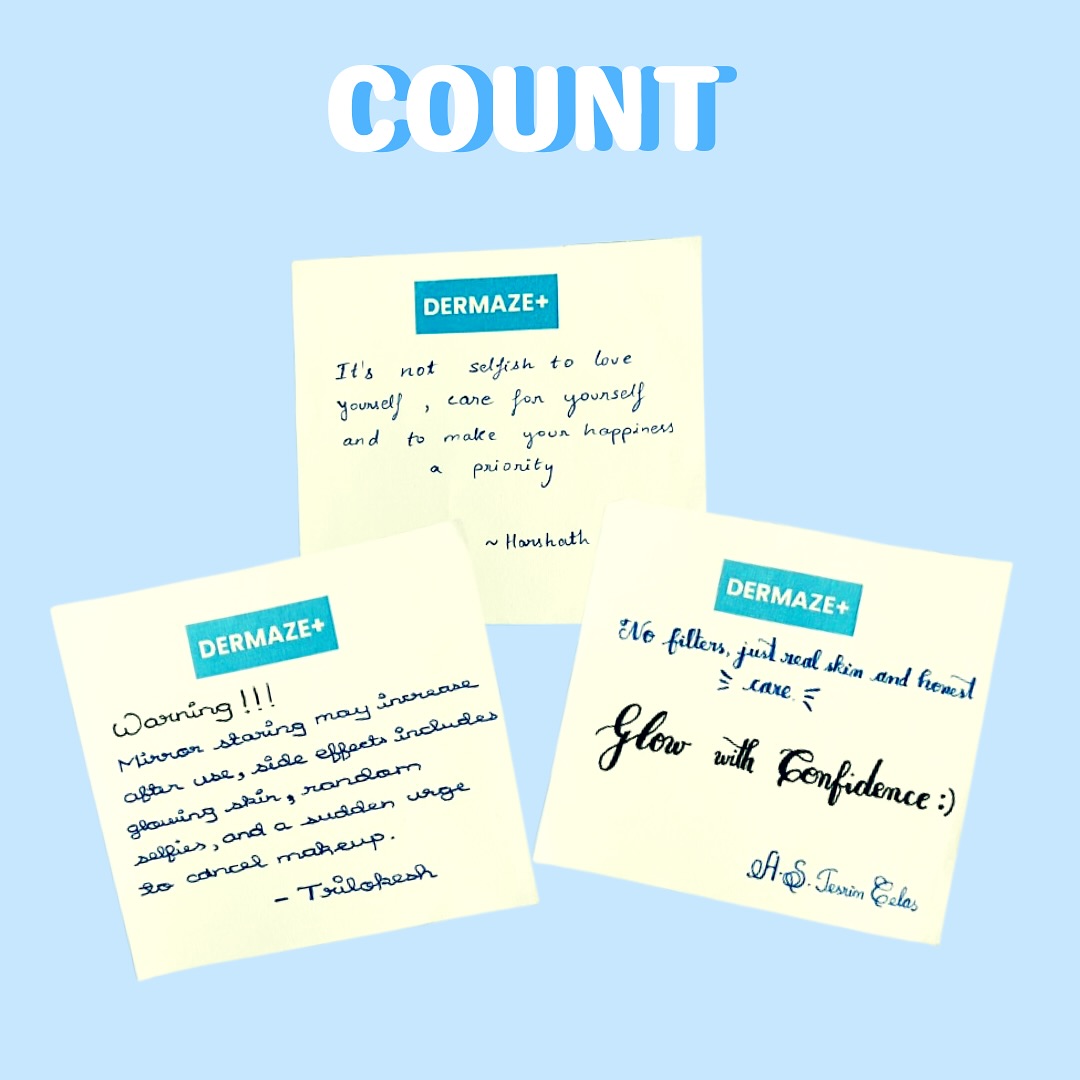 COUNT
DERMAZE+
It's not selfish to love
yourself, care for yourself
and to make your happiness
a priority
~ Harshath
DERMAZE+
Warning!!!
Mirror staring may increase
after use, side effects includes
glowing skin, random
selfies, and a sudden urge
to cancel makeup.
- Trilokesh
DERMAZE+
No filters, just real skin and honest
care.
Glow with Confidence :)
A.S. Tesrim Eelas